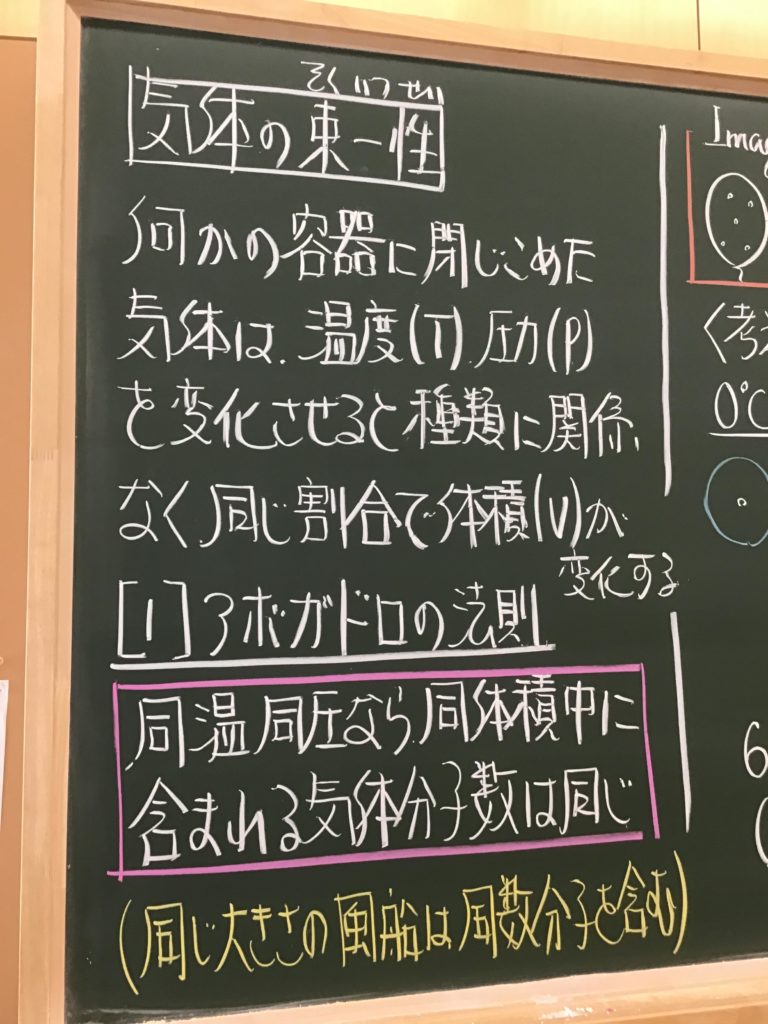 そくいつせい
気体の束一性
何かの容器に閉じこめた
気体は、温度(T)、圧力(P)
を変化させると種類に関係、
なく同じ割合で体積(V)が
変化する
[1]アボガドロの法則
同温同圧なら、同体積中に
含まれる気体分子数は同じ
(同じ大きさの風船は同数分子を含む)
0℃
6